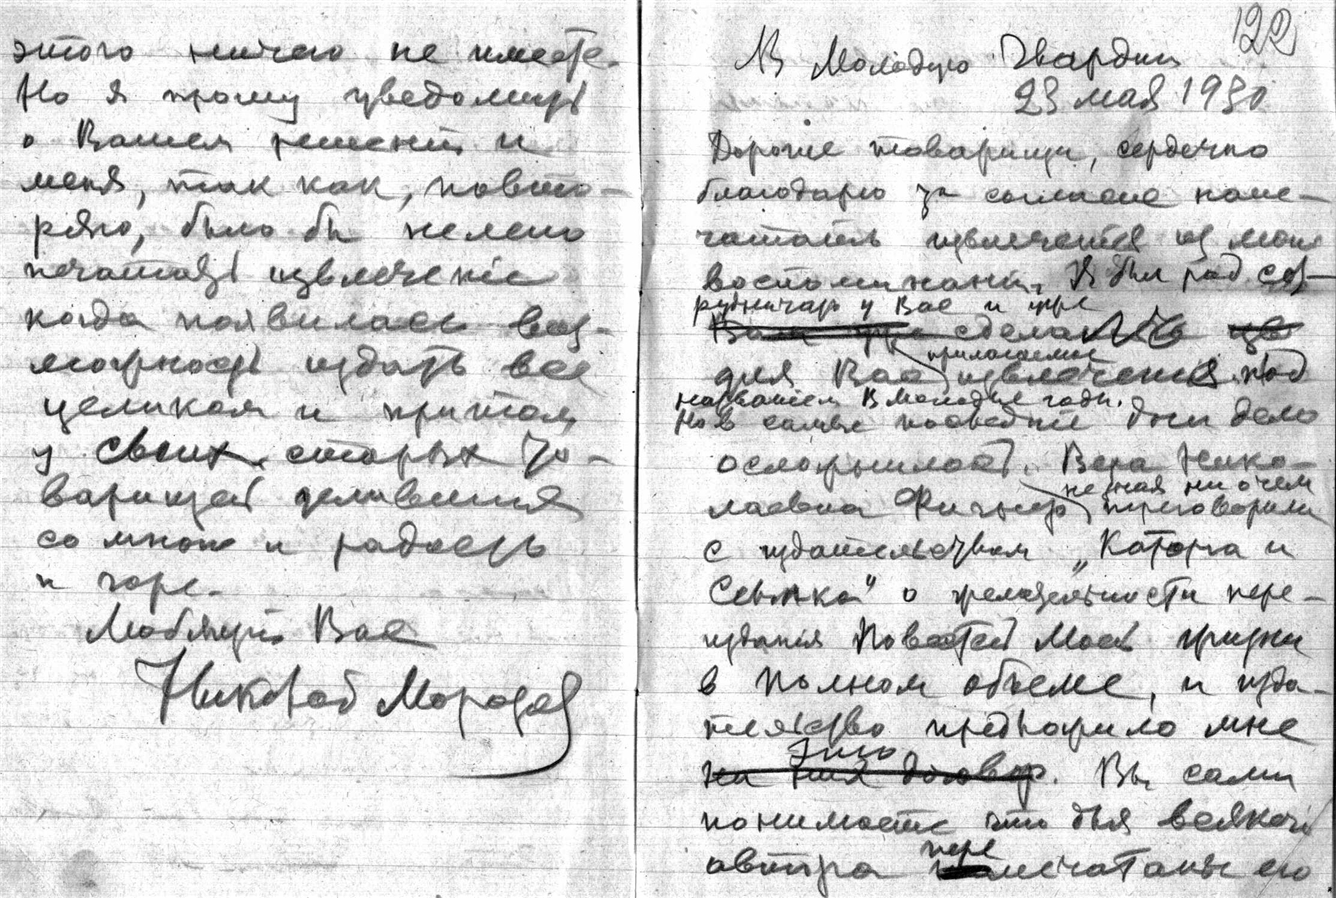 этого ничего не имеете.
Но я прошу уведомить
о Вашем решении и
меня, так как, повто-
ряю, было бы нелепо
печатать извлечение
когда появилась воз-
можность издать все
целиком и притом
у своих старых то-
варищей деливших
со мною и радость
и горе.
Любящий Вас
Николай Морозов
122
В Молодую Гвардию
23 мая 1930
Дорогие товарищи, сердечно
благодарю за согласие напе-
чатать извлечения из моих
воспоминаний. Я был рад сот-
рудничать у Вас и уже
Вам уже сделал
прилагаемые
для Вас извлечения под
названием В молодые годы.
Но в самые последние дни дело
осложнилось. Вера Нико-
не зная ни о чем
лаевна Фигнер переговорила
с издательством „Каторга и
Ссылка" о желательности пере-
издания Повестей Моей жизни
в полном объеме, и изда-
тельство предложило мне
это
на них договор. Вы сами
понимаете что для всякого
пере
автора напечатание его